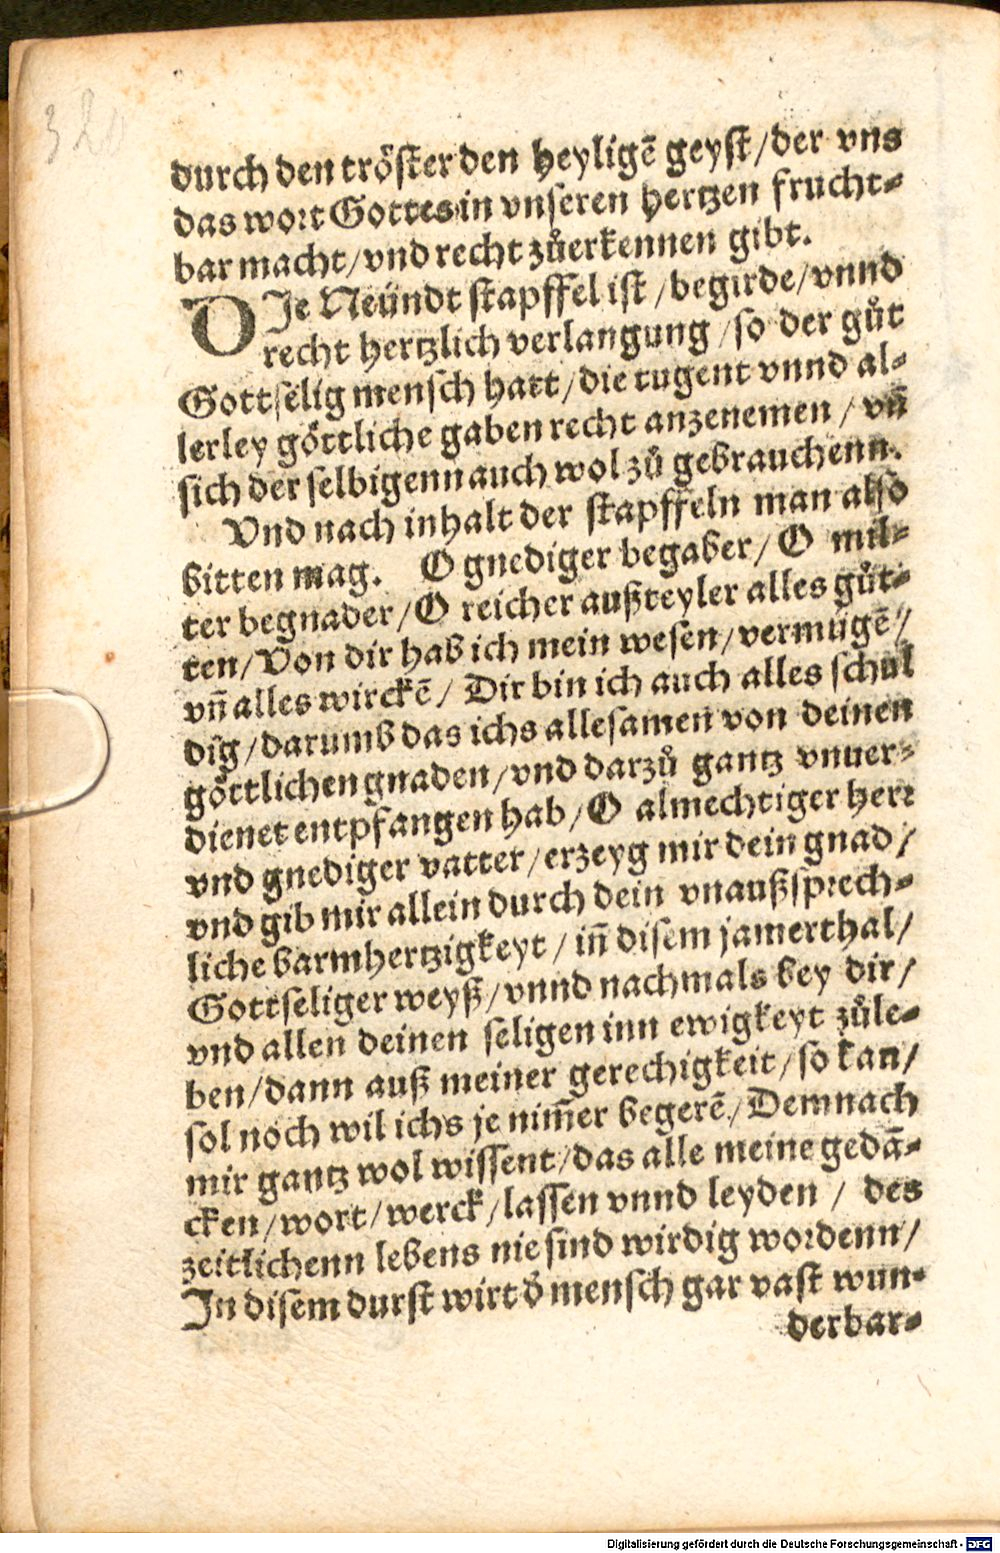 320
durch den tröster den heyligẽ geyst/der vns
das wort Gottes in vnseren hertzen frucht⸗
bar macht/vnd recht zůerkennen gibt.
DIe Neündt stapffel ist/begirde/vnnd
recht hertzlich verlangung/so der gůt
Gottselig mensch hatt/die tugent vnnd al⸗
lerley göttliche gaben recht anzenemen/vñ
sich der selbigenn auch wol zů gebrauchenn.
Vnd nach inhalt der stapffeln man also
bitten mag. O gnediger begaber/O mil⸗
ter begnader/O reicher außteyler alles gůt⸗
ten/Von dir hab ich mein wesen/vermügẽ/
vñ alles wirckẽ/Dir bin ich auch alles schul
dig/darumb das ichs allesamen von deinen
göttlichen gnaden/vnd darzů gantz vnuer⸗
dienet entpfangen hab/O almechtiger herr
vnd gnediger vatter/erzeyg mir dein gnad/
vnd gib mir allein durch dein vnaußsprech⸗
liche barmhertzigkeyt/iñ disem jamerthal/
Gottseliger weyß/vnnd nachmals bey dir/
vnd allen deinen seligen inn ewigkeyt zůle⸗
ben/dann auß meiner gerechigkeit/so kan/
sol noch wil ichs je nim̃er begerẽ/Demnach
mir gantz wol wissent/das alle meine gedã⸗
cken/wort/werck/lassen vnnd leyden/des
zeitlichenn lebens nie sind wirdig wordenn/
In disem durst wirt d̾ mensch gar vast wun⸗
derbar⸗
Digitalisierung gefördert durch die Deutsche Forschungsgemeinschaft - DFG